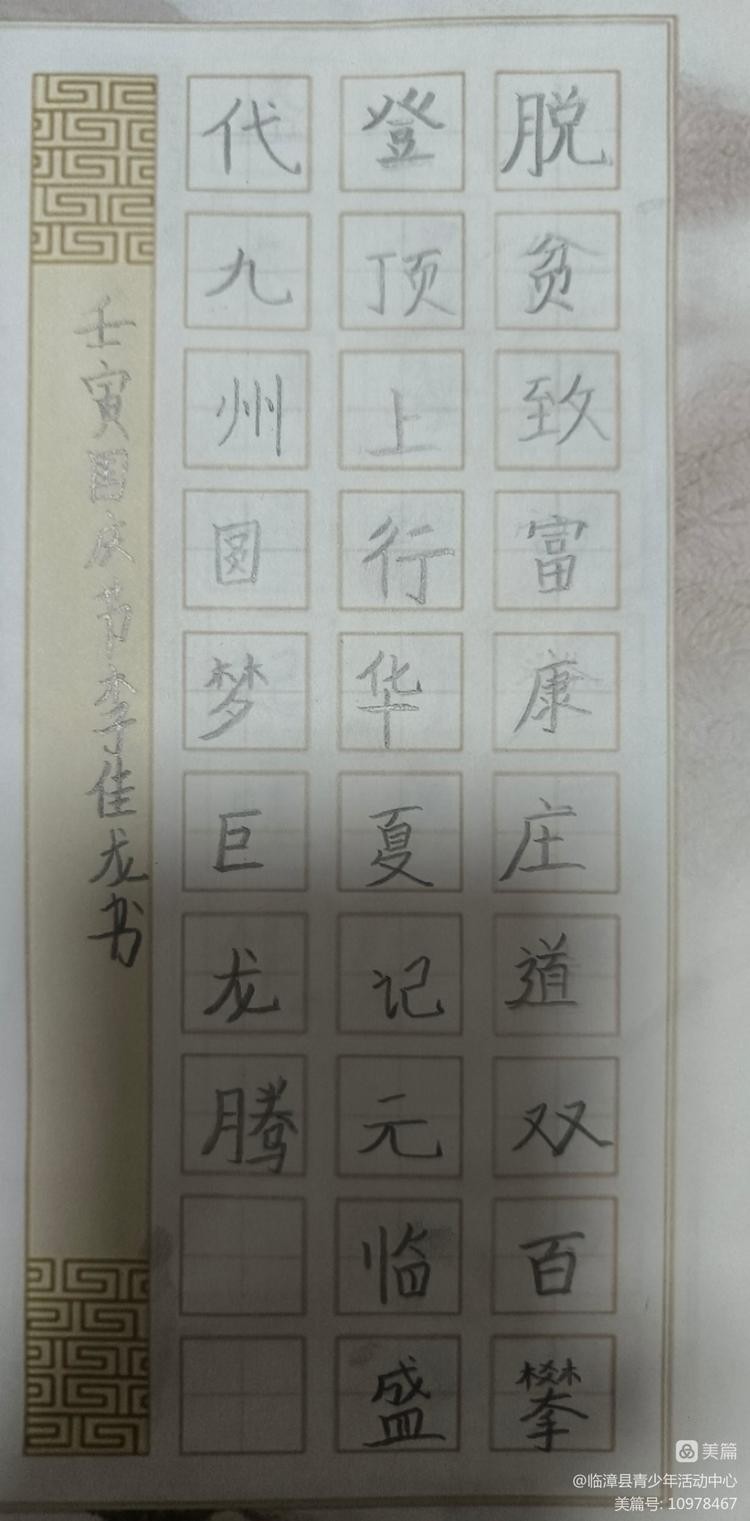 脱贫致富康庄道双百攀
登顶上行华夏记元临盛
代九州圆梦巨龙腾
壬寅国庆节李佳龙书
美篇
@临漳县青少年活动中心
美篇号: 10978467